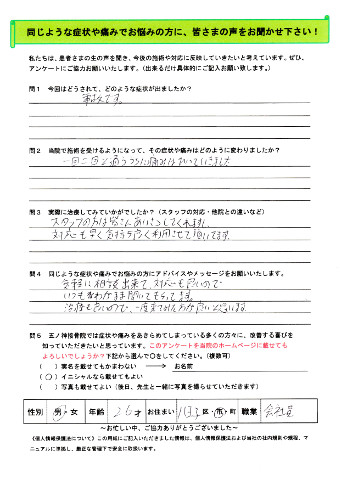 同じような症状や痛みでお悩みの方に、皆さまの声をお聞かせ下さい！
私たちは、患者さまの生の声を聞き、今後の施術や対応に反映していきたいと考えています。ぜひ、
アンケートにご協力お願いいたします。（出来るだけ具体的にご記入お願い致します。）
問１　今回はどうされて、どのような症状が出ましたか？
事故です。
問２　当院で施術を受けるようになって、その症状や痛みはどのように変わりましたか？
一回二回と通うつちに痛みは引いていきました
問３　実際に治療してみていかがでしたか？（スタッフの対応・他院との違いなど）
スタッフの方は皆さんあいさつしてくれますし、
対応も早く気持ち良く利用させて頂いてます。
問４　同じような症状や痛みでお悩みの方にアドバイスやメッセージをお願いします。
気軽に相談出来て、対応も良いので
いつもわがまま聞いてもらってます。
治療も良いので、一度来てみた方が良いと思います。
問５　五ノ神接骨院では症状や痛みをあきらめてしまっている多くの方々に、改善する喜びを
知っていただきたいと思っています。このアンケートを当院のホームページに載せても
よろしいでしょうか？下記から選んで○をしてください。（複数可）
（　）実名を載せてもかまわない　→　お名前
（○）イニシャルなら載せてもよい
（　）写真も載せてよい（後日、先生と一緒に写真を撮らせていただきます）
性別　男・女　年齢　26才　お住まい　八王子　区・市・町　職業　会社員
～お忙しい中、ご協力ありがとうございました～
《個人情報保護法について》この用紙にご記入いただきました情報は、個人情報保護法および当社の社内規則や規程、マ
ニュアルに準拠し、厳正な管理下で安全に取扱います。